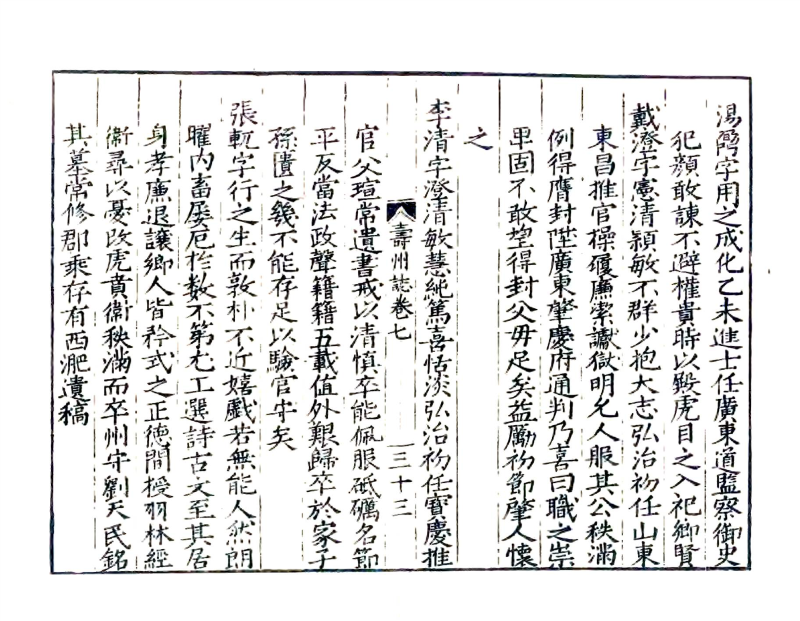 湯鼐字用之成化乙未進士任廣東道監察御史
犯顏敢諫不避權貴時以殿虎目之入祀鄉賢
戴澄字憲清穎敏不群少抱大志弘治初任山東
東昌推官操履廉潔讞獄明允人服其公秩滿
例得膺封陞廣東肇慶府通判乃喜曰職之崇
卑固不敢望得封父毋足矣益勵初節肇人懷
之
李清字澄清敏慧純篤喜恬淡弘治初任寶慶推
壽州誌卷七
三十三
官父瑄常遺書戒以清慎卒能佩服砥礪名節
平反當法政聲籍籍五載值外艱歸卒於家子
孫匱之幾不能存足以驗官守矣
張軏字行之生而敦朴不近嬉戲若無能人然朗
曜內畜屡厄於数不第尤工選詩古文至其居
身孝廉退讓鄉人皆矜式之正德間授羽林經
衛尋以憂改虎賁衛秩滿而卒州守劉天民銘
其墓常修郡乘存有西淝遺稿